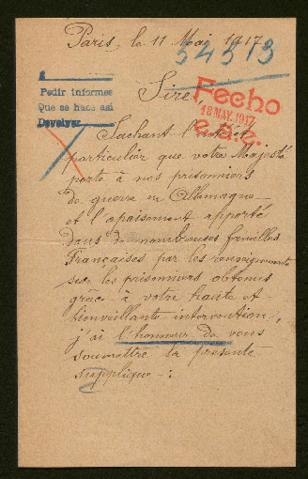 Paris, le 11 Mai 1917
54513
à
Pedir informes
Que se hace así
Devolver
Fecho
18 MAY. 1917
Sire,
Sachant l'intérêt
particulier que votre Majesté
porte à nos prisonniers
de guerre en Allemagne
et l'apaisement apporté
dans de nombreuses familles
Françaises par les renseignements
sur les prisonniers obtenus
grâce à votre haute et
bienveillante intervention,
j'ai l'honneur de vous
soumettre la présente
supplique :